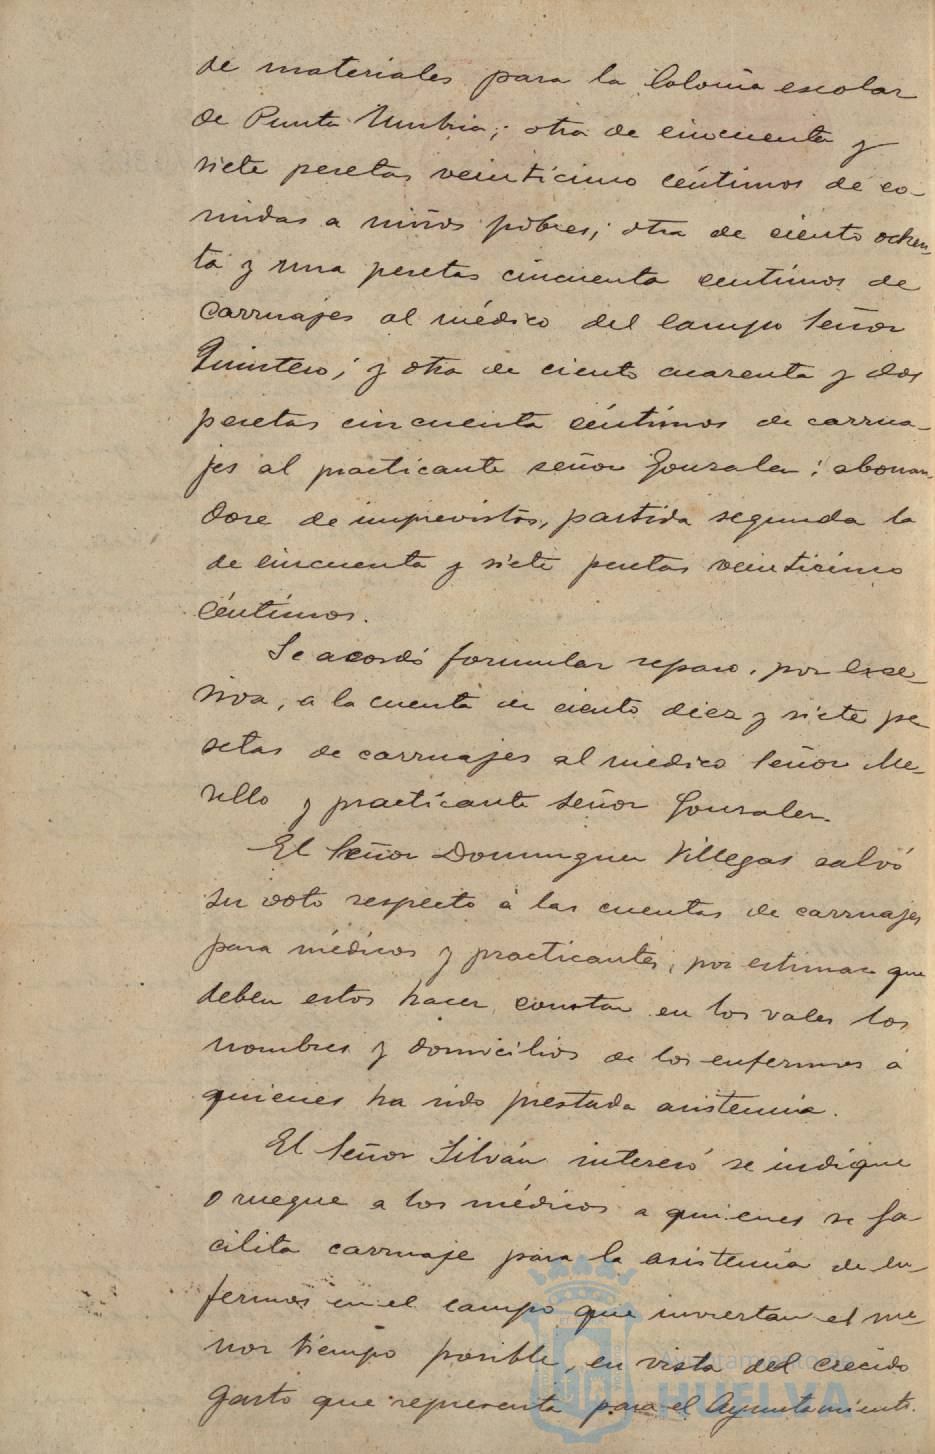 de materiales para la Colonia escolar
de Punta Umbria; otra de cincuenta y
siete pesetas veinticinco céntimos de co-
midas a niños pobres; otra de ciento ochen-
ta y una pesetas cincuenta centimos de
carruajes al médico del campo Señor
Quintero; y otra de ciento cuarenta y dos
pesetas cincuenta céntimos de carrua-
jes al practicante señor Gonzalez: abonan-
dose de imprevistos, partida segunda la
de cincuenta y siete pesetas veinticinco
céntimos.
Se acordó formular reparo, por exce-
siva, a la cuenta de ciento diez y siete pe
setas de carruajes al médico Señor Me-
rello y practicante Señor Gonzalez.
El Señor Dominguez Villegas salvó
su voto respecto á las cuentas de carruajes
para médicos y practicantes, por estimar que
deben estos hacer constar en los vales los
nombres y domicilios de los enfermos á
quienes ha sido prestada asistencia.
El Señor Silván interesó se indique
o ruegue a los médicos a quienes se fa
cilita carruaje para la asistencia de en-
fermos en el campo que inviertan el me-
nor tiempo posible, en vista del crecido
gasto que representa para el Ayuntamiento.
Ayuntamiento de
HUELVA